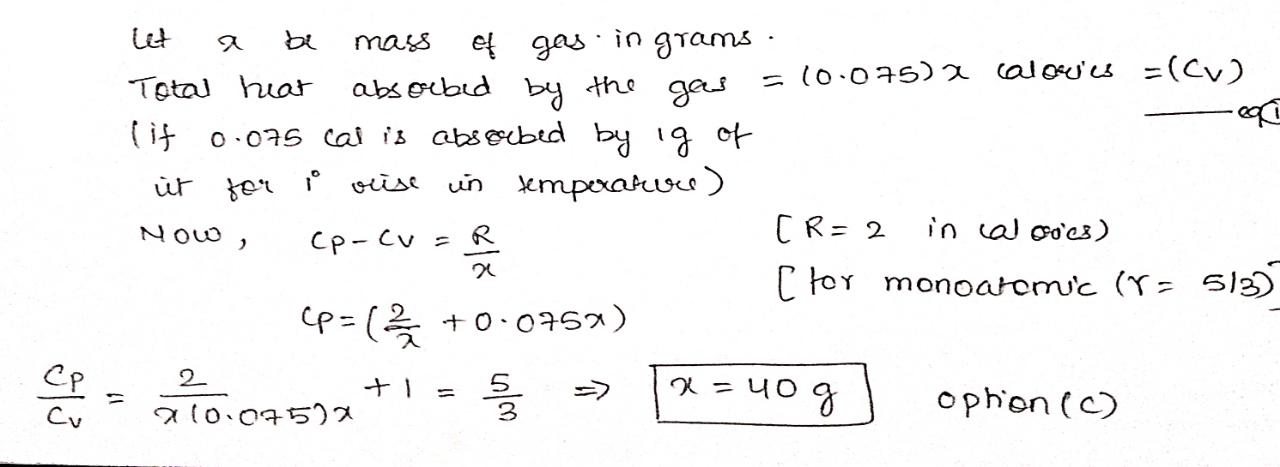 Let x be mass of gas in grams.
Total heat absorbed by the gas = (0.075)x calories = (Cv)
— eq i
(if 0.075 cal is absorbed by 1g of
it for 1° rise in temperature)
Now, Cp - Cv = R/x [R = 2 in calories)
[for monoatomic (γ = 5/3)]
Cp = (2/x + 0.075x)
Cp/Cv = 2/x(0.075)x + 1 = 5/3 => x = 40 g option (c)